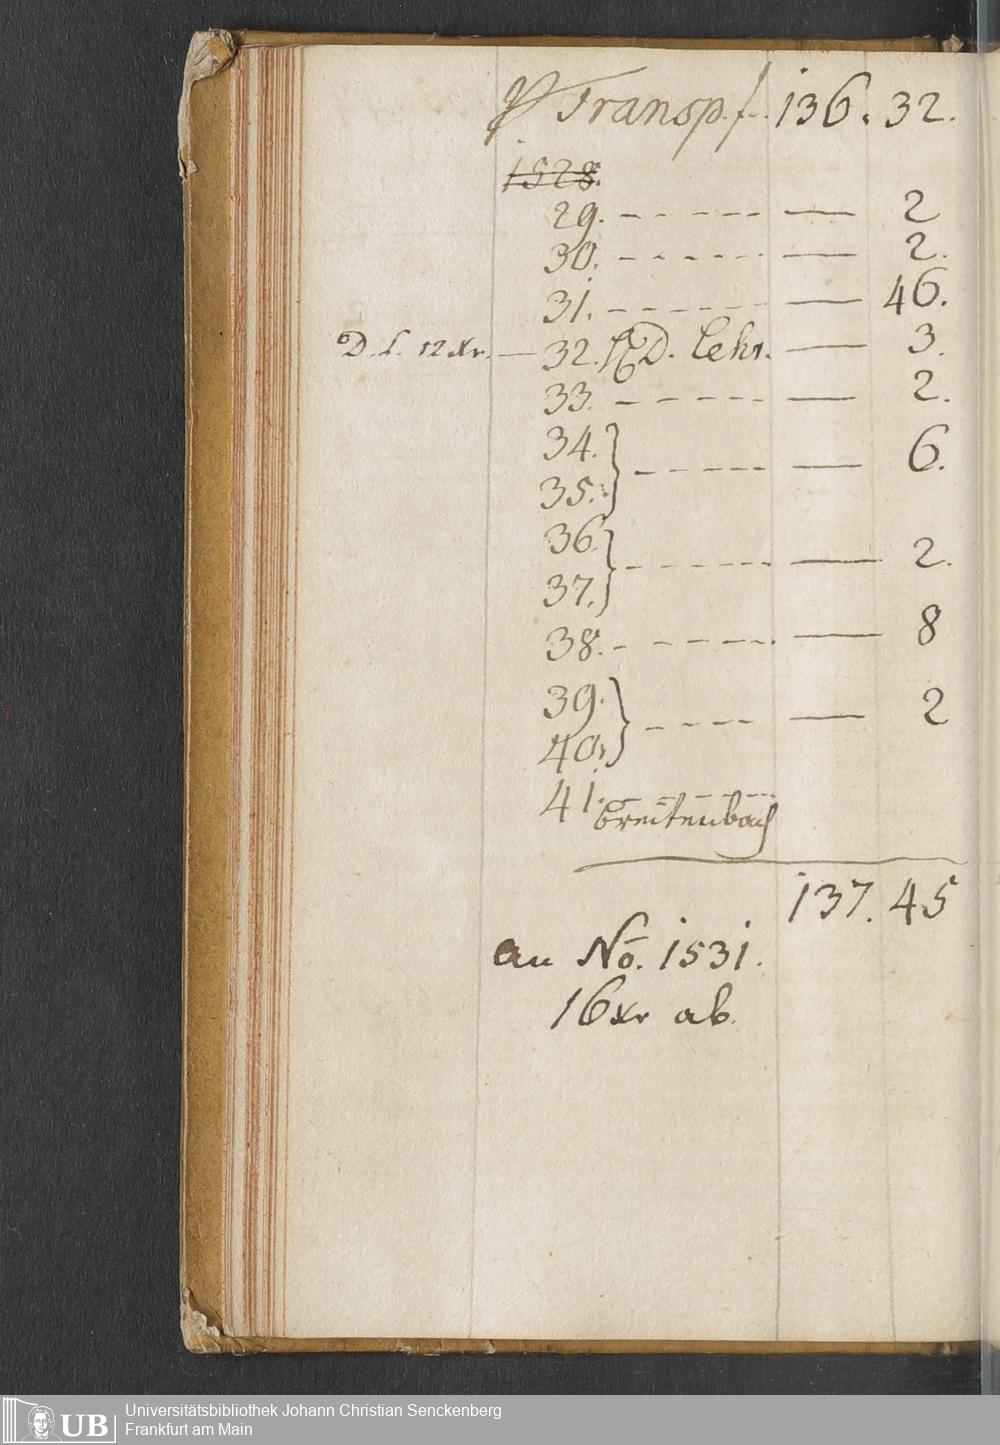 Transp. f. 136. 32.
1528.
29. - - - - - — 2
30. - - - - - — 2.
31. - - - - - — 46.
D. L. 12 Xr. — 32. HD. Lehr. — 3.
33. - - - - - — 2.
34.
35. } - - - - - — 6.
36.
37. } - - - - - — 2.
38. - - - - - — 8
39.
40. } - - - - — 2
41. - - - - -
breitenbach
137. 45
an No. 1531.
16 xr ab.
UB Universitätsbibliothek Johann Christian Senckenberg
Frankfurt am Main